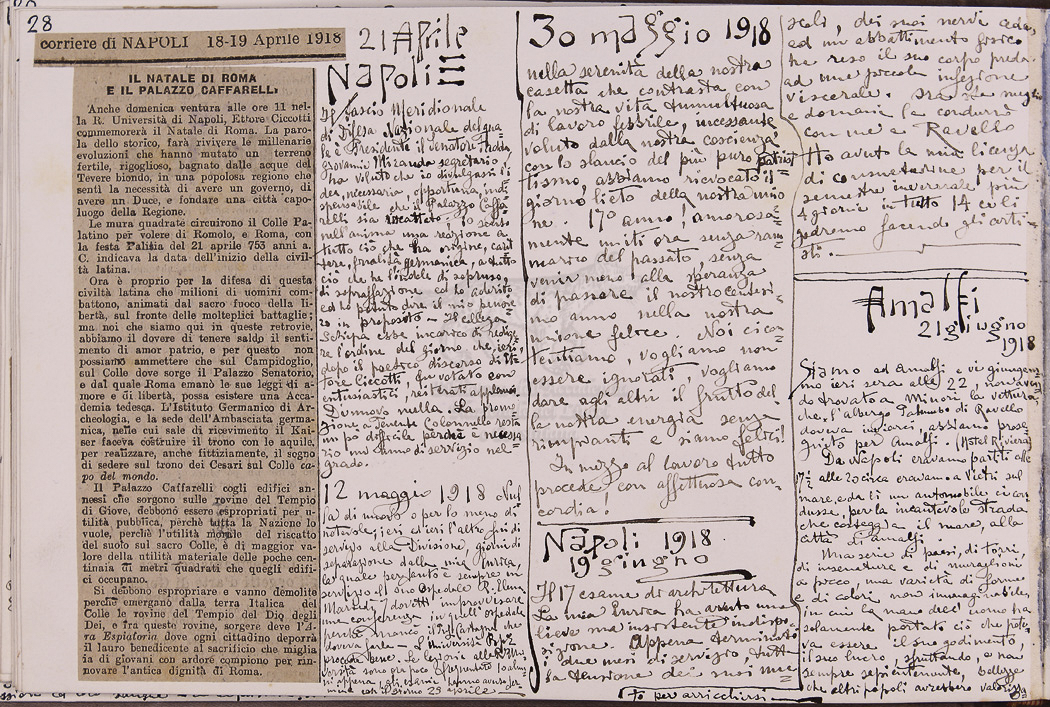 28
corriere di NAPOLI 18-19 Aprile 1918
IL NATALE DI ROMA
E IL PALAZZO CAFFARELLI
Anche domenica ventura alle ore 11 nel-
la R. Università di Napoli, Ettore Ciccotti
commemorerà il Natale di Roma. La paro-
la dello storico, farà rivivere le millenarie
evoluzioni che hanno mutato un terreno
fertile, rigoglioso, bagnato dalle acque del
Tevere biondo, in una popolosa regione che
sentì la necessità di avere un governo, di
avere un Duce, e fondare una città capo-
luogo della Regione.
Le mura quadrate circuirono il Colle Pa-
latino per volere di Romolo, e Roma, con
la festa Palilia del 21 aprile 753 anni a.
C. indicava la data dell'inizio della civil-
tà latina.
Ora è proprio per la difesa di questa
civiltà latina che milioni di uomini com-
battono, animati dal sacro fuoco della li-
bertà, sul fronte delle molteplici battaglie;
ma noi che siamo qui in queste retrovie,
abbiamo il dovere di tenere saldo il senti-
mento di amor patrio, e per questo non
possiamo ammettere che sul Campidoglio,
sul Colle dove sorge il Palazzo Senatorio,
e dal quale Roma emanò le sue leggi di a-
more e di libertà, possa esistere una Acca-
demia tedesca. L'Istituto Germanico di Ar-
cheologia, e la sede dell'Ambasciata germa-
nica, nelle cui sale di ricevimento il Kai-
ser faceva costruire il trono con le aquile,
per realizzare, anche fittiziamente, il sogno
di sedere sul trono dei Cesari sul Colle ca-
po del mondo.
Il Palazzo Caffarelli cogli edifici an-
nessi che sorgono sulle rovine del Tempio
di Giove, debbono essere espropriati per u-
tilità pubblica, perchè tutta la Nazione lo
vuole, perchè l'utilità morale del riscatto
del suolo sul sacro Colle, è di maggior va-
lore della utilità materiale delle poche cen-
tinaia di metri quadrati che quegli edifi-
ci occupano.
Si debbono espropriare e vanno demolite
perchè emergano dalla terra Italica del
Colle le rovine del Tempio del Dio degli
Dei, e fra queste rovine, sorgere deve l'A-
ra Espiatoria dove ogni cittadino deporrà
il lauro benedicente al sacrificio che miglia
ia di giovani con ardore compiono per rin-
novare l'antica dignità di Roma.
21 Aprile
Napoli
Il fascio Meridionale
di Difesa Nazionale del qua
le è Presidente il Senatore
Giovanni Miranda segretario,
ha voluto che io divulgassi l'i
dea, necessaria, opportuna, indi
spensabile che il Palazzo Caffa
relli sia riscattato. Io sento
nell'anima una reazione a
tutto ciò che ha origine, carat
tere, finalità germanica, a tutto
ciò che ha l'indole di sopruso,
di sopraffazione ed ho aderito
ed ho potuto dire il mio pensie
ro in proposito — Il collega
Schipa ebbe incarico di redige
re l'ordine del giorno che, ieri,
dopo il poetico discorso di Et
tore Ciccotti, fu votato con
entusiastici, reiterati applausi
Di nuovo nulla. La promo
zione a Tenente Colonnello resta
un po difficile perchè è necessa
rio un anno di servizio nel
grado.
12 maggio 1918 Nul
la di nuovo o per lo meno di
notevole; ieri ed ieri l'altro fui di
servizio alla Divisione, giorni di
separazione dalla mia Enrica,
la quale per fanto è sempre in
servizio al suo Ospedale R. Elena
Martedì 7 dovetti improvvisare
una conferenza in quell'ospedale
perchè mancò il
doveva farla — L'Università
procede bene. Le lezioni alla
versità sono state frequentate
ni appena, gli esami hanno avuto ter-
mine con il giorno 29 aprile
30 maggio 1918
nella serenità della nostra
casetta che contrasta con
la nostra vita tumultuosa
di lavoro febbrile, incessante
voluto dalla nostra coscienza
con lo slancio del più puro patriot
tismo, abbiamo rievocato il
giorno lieto della nostra unio
ne. 17º anno! amorosa
mente uniti ora senza ram
marico del passato, senza
venir meno alla speranza
di passare il nostro centesi
mo anno nella nostra
unione felice. Noi ci con
tentiamo, vogliamo non
essere ignorati, vogliamo
dare agli altri il frutto del
la nostra energia senza
rimpianti e siamo felici!
In mezzo al lavoro tutto
procede con affettuosa con-
cordia!
Napoli 1918
19 giugno
Il 17 esame di architettura
La mia Enrica ha avuto una
lieve ma insistente indispo
sizione. Appena terminato
due mesi di servizio, tutta
la tensione dei suoi mu
scoli, dei suoi nervi cede,
ed un abbattimento fisico
ha reso il suo corpo preda
ad una piccola infezione
viscerale. Ora sta meglio
e domani la condurrò
con me a Ravello
Ho avuto la mia licenza
di convenzione per il
semestre invernale più
4 giorni in tutto 14 coli
godremo facendo gli arti-
sti.
Amalfi
21 giugno
1918
Siamo ad Amalfi e vi giungem
mo ieri sera alle 22, non aven
do trovato a Minori la vettura
che, l'albergo Palumbo di Ravello
doveva inviarci, abbiamo prose
guito per Amalfi. (Hotel Riviera)
Da Napoli eravamo partiti alle
17½ alle 20 circa eravamo a Vietri sul
mare, e da lì un automobile ci con
dusse, per la incantevole strada
che costeggia il mare, alla
città di Amalfi.
Una serie di paesi, di torri,
di insenature e di muraglioni
a picco, una varietà di forme
e di colori non immaginabile
in cui la mano dell'uomo ha
solamente portato ciò che pote
va essere il suo godimento
il suo lucro, sfruttando, e non
sempre sapientemente, bellezze
che altri popoli avrebbero valorizza
to per arricchirsi —